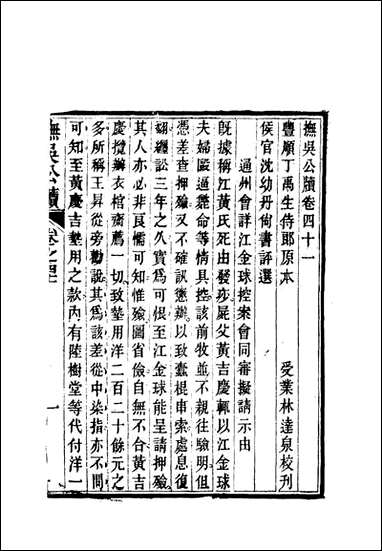 撫吳公牘卷四十一
豐順丁禹生侍郎原本 受業林達泉校刊
侯官沈幼丹尚書評選
通州會詳江金球控案會同審擬請示由
既據稱江黃氏死由發痧屍父黃吉慶輒以江金球
夫婦毆逼斃命等情具控該前牧並不親往驗明但
憑差查押殮又不確訊懲辦以致蠹棍串索息復
翻纏訟三年之久實為可恨至江金球能呈請押殮
其人亦必非良懦可知惟殮圖省儉自無不合黃吉
慶攬辦衣棺齋薦一切致墊用洋二百二十餘元之
多所稱王昇從旁勸說其為該差從中染指亦不問
可知至黃慶吉墊用之款內有陸樹堂等代付洋一
撫吳公牘
卷之四
一